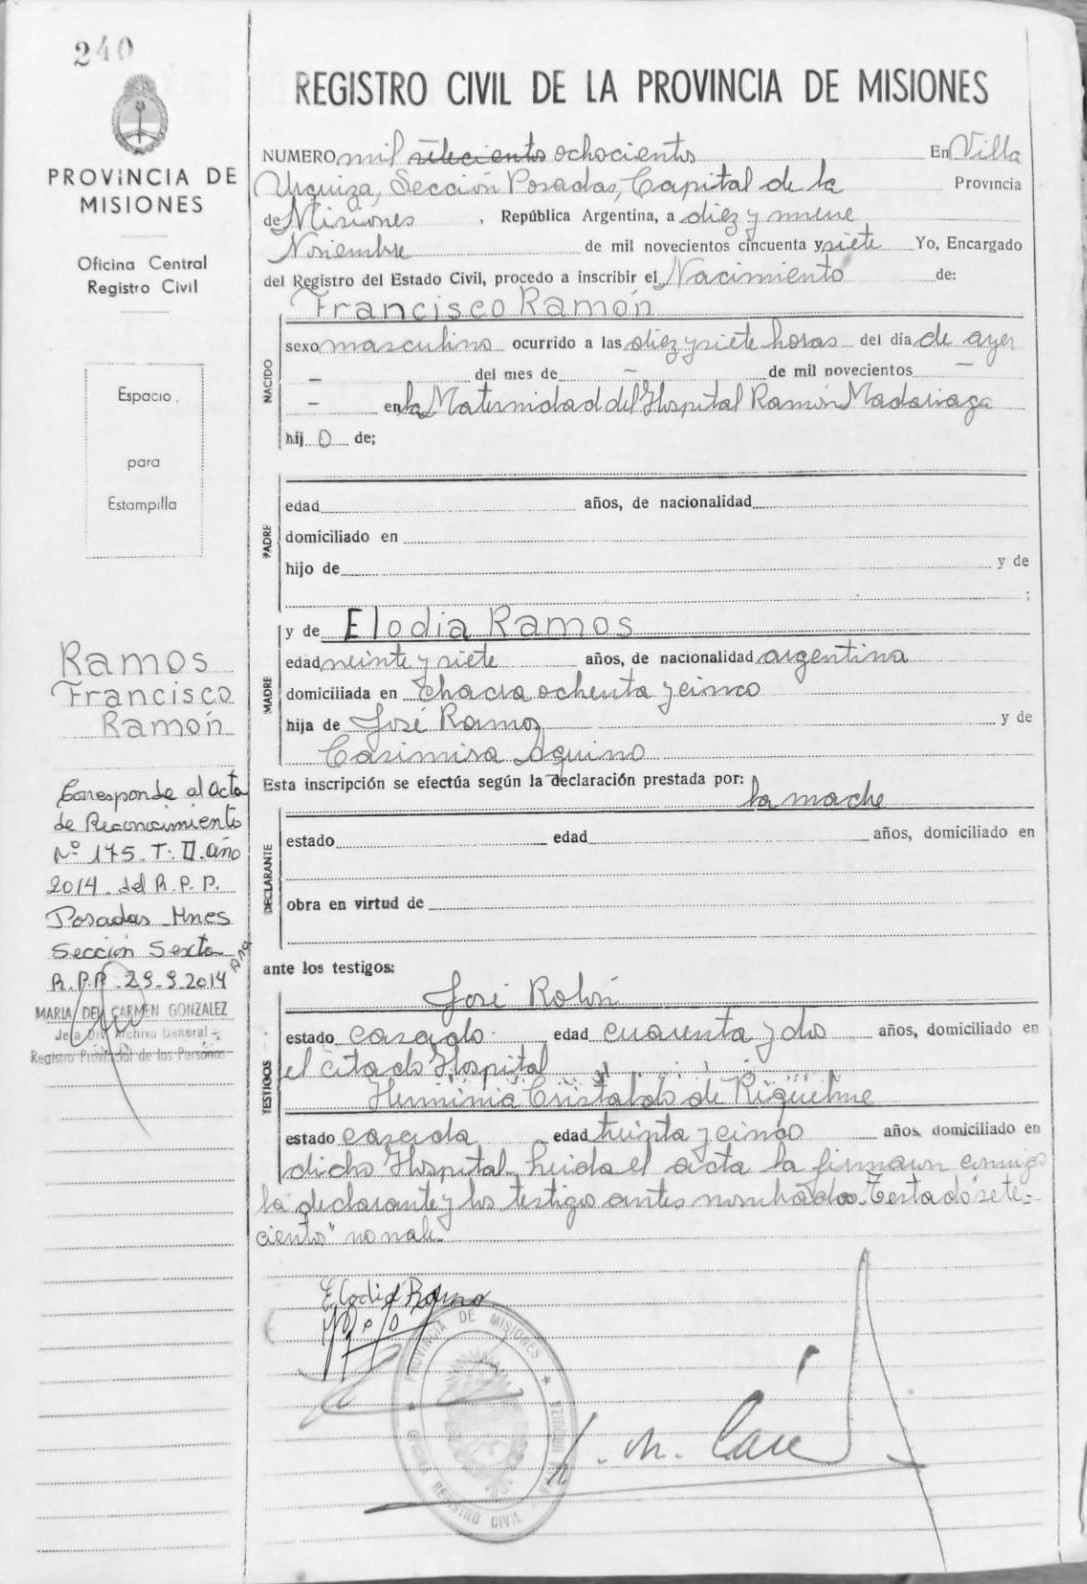 240
PROVINCIA DE
MISIONES
Oficina Central
Registro Civil
Espacio
para
Estampilla
Ramos
Francisco
Ramón
Corresponde al Acta
de Reconocimiento
Nº 175. T: II. año
2014. del R.P.P.
Posadas Mnes
Sección Sexta
R.P.P. 29-9-2014
MARIA DEL CARMEN GONZALEZ
Jefa Div. Archivo General
Registro Provincial de las Personas
REGISTRO CIVIL DE LA PROVINCIA DE MISIONES
NUMERO mil setecientos ochocientos En Villa
Urquiza, Sección Posadas, Capital de la Provincia
de Misiones, República Argentina, a diez y nueve
Noviembre de mil novecientos cincuenta y siete Yo, Encargado
del Registro del Estado Civil, procedo a inscribir el Nacimiento de:
Francisco Ramón
NACIDO
sexo masculino ocurrido a las diez y siete horas del día de ayer
- del mes de - de mil novecientos -
- en la Maternidad del Hospital Ramón Madariaga
hij o de;
PADRE
edad años, de nacionalidad
domiciliado en
hijo de y de
;
MADRE
y de Elodia Ramos
edad veinte y siete años, de nacionalidad argentina
domiciliada en Chacra ochenta y cinco
hija de José Ramos y de
Casimira Aquino
Esta inscripción se efectúa según la declaración prestada por: la madre
DECLARANTE
estado edad años, domiciliado en
obra en virtud de
ante los testigos:
TESTIGOS
José Rolón
estado casado edad cuarenta y dos años, domiciliado en
el citado Hospital
Herminia Cristaldo de Riquelme
estado casada edad treinta y cinco años, domiciliado en
dicho Hospital. Leida el acta la firmaron conmigo
la declarante y los testigos antes nombrados. Testado "sete-
cientos" no vale.
Elodia Ramo
PROVINCIA DE MISIONES
REGISTRO CIVIL